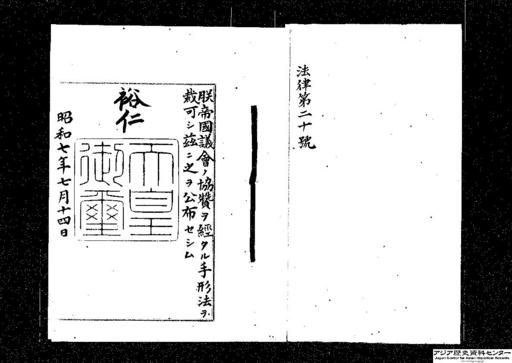 法律第二十號
朕帝國議會ノ協贊ヲ經タル手形法ヲ
裁可シ茲ニ之ヲ公布セシム
裕仁
天皇
御璽
昭和七年七月十四日
アジア歴史資料センター
Japan Center for Asian Historical Records